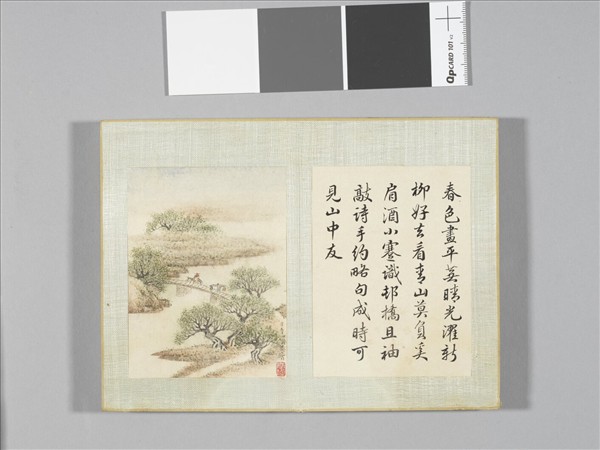 QPCARD 101 v2
春色畫平蕪晴光濯新
柳好去看青山莫負奚
肩酒小蹇識邨橋且袖
敲詩手約略句成時可
見山中友